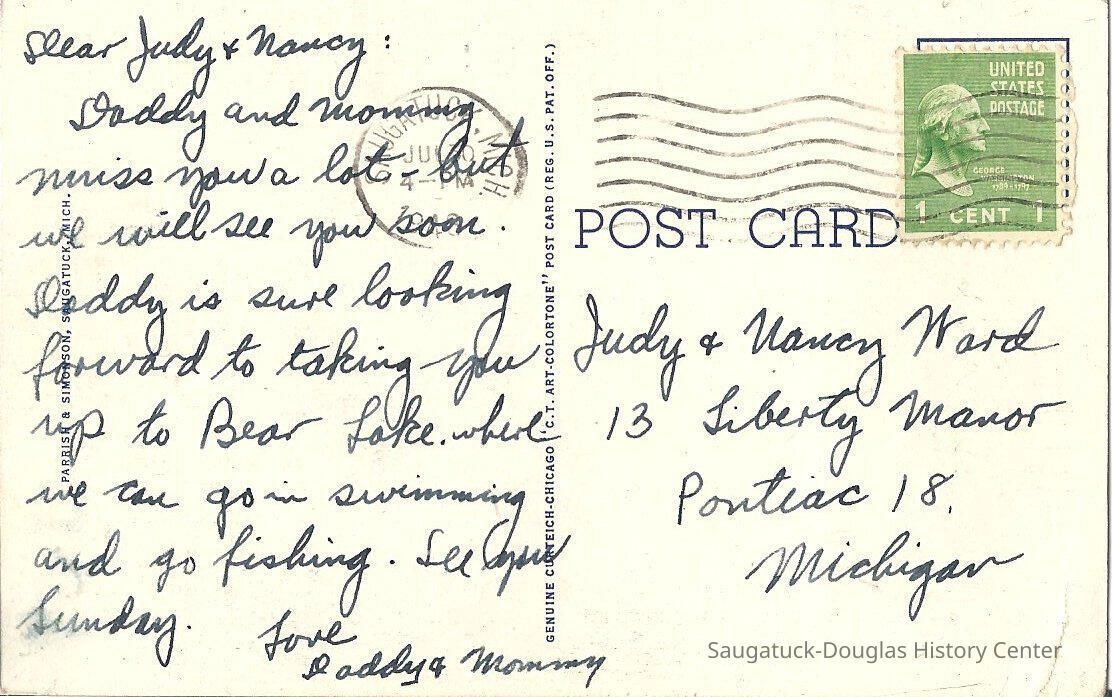 Dear Judy & Nancy :
Daddy and Mommy
miss you a lot - but
we will see you soon.
Daddy is sure looking
forward to taking you
up to Bear Lake. where
we can go in swimming
and go fishing. See you
Sunday.
Love
Daddy & Mommy
PARRISH & SIMONSON, SAUGATUCK, MICH.
SAUGATUCK, MICH.
4 - PM
GENUINE CURTEICH-CHICAGO "C.T. ART-COLORTONE" POST CARD (REG. U.S. PAT. OFF.)
UNITED
STATES
POSTAGE
GEORGE
WASHINGTON
1789-1797
1 CENT 1
POST CARD
Judy & Nancy Ward
13 Liberty Manor
Pontiac 18,
Michigan
Saugatuck-Douglas History Center